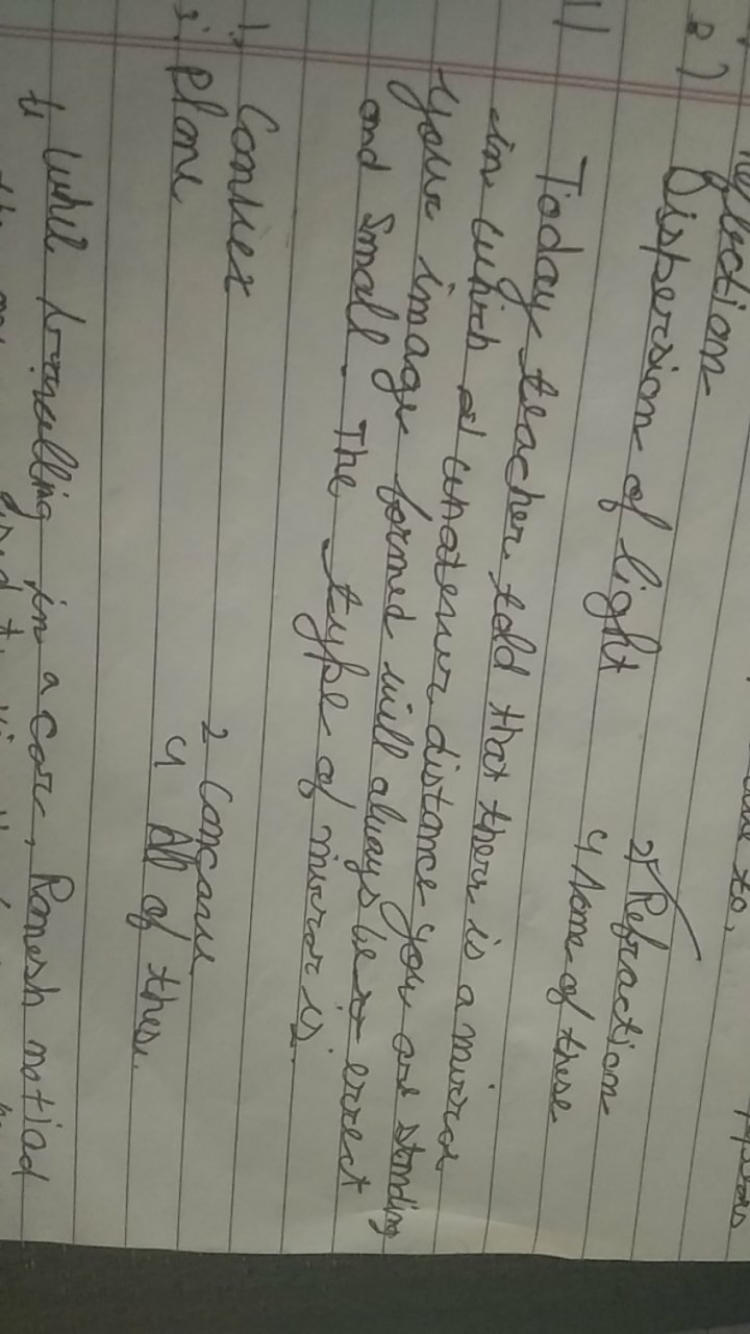 Dispersion of light 2) Refraction
4 None of these
1) Today teacher told that there is a mirror
in which at whatever distance you are standing
your image formed will always be erect
and small. The type of mirror is.
1. Convex 2 Concave
3. Plane 4 All of these.
While travelling in a car, Ramesh noticed